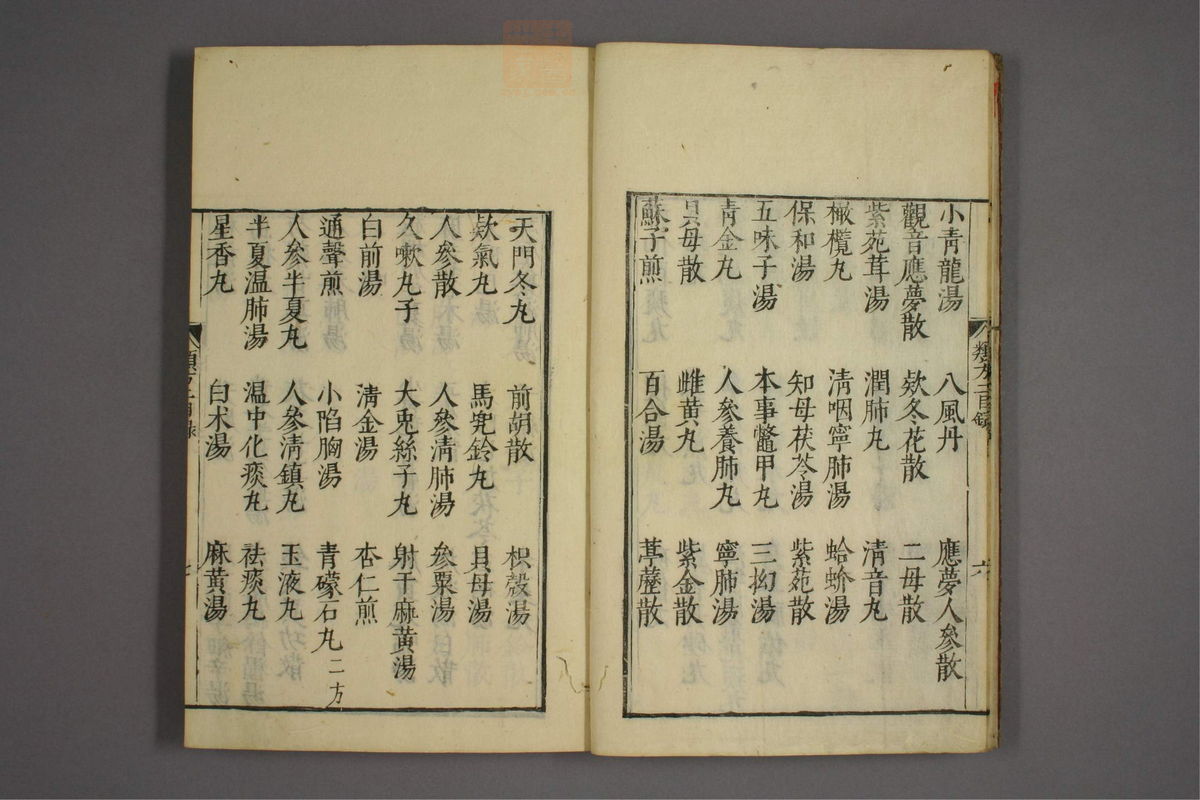 小青龍湯 八風丹 應夢人參散
觀音應夢散 欵冬花散 二母散
紫苑茸湯 潤肺丸 清音丸
橄欖丸 清咽寧肺湯 蛤蚧湯
保和湯 知母茯苓湯 紫苑散
五味子湯 本事鼈甲丸 三拗湯
青金丸 人參養肺丸 寧肺湯
貝母散 雌黃丸 紫金散
蘇子煎 百合湯 葶藶散
類方三目錄 六
天門冬丸 前胡散 枳殼湯
欬氣丸 馬兜鈴丸 貝母湯
人參散 人參清肺湯 參粟湯
久嗽丸子 大兎絲子丸 射干麻黃湯
白前湯 清金湯 杏仁煎
通聲煎 小陷胸湯 青礞石丸二方
人參半夏丸 人參清鎮丸 玉液丸
半夏温肺湯 温中化痰丸 祛痰丸
星香丸 白术湯 麻黃湯
目錄 七